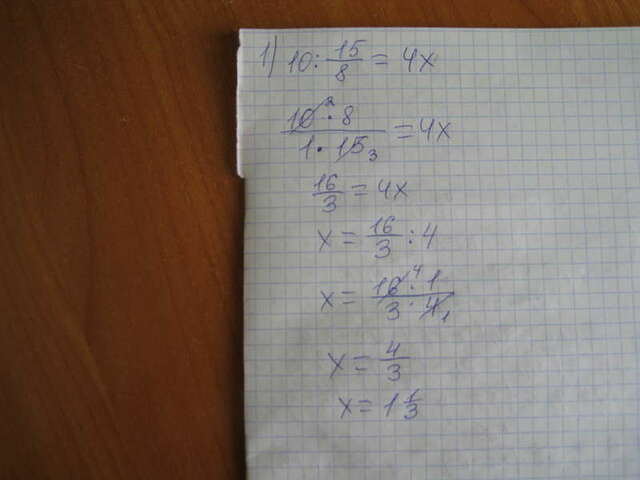 1) 10 : 15/8 = 4x
10² · 8 / 1 · 15₃ = 4x
16/3 = 4x
x = 16/3 : 4
x = 16⁴ · 1 / 3 · 4₁
x = 4/3
x = 1 1/3